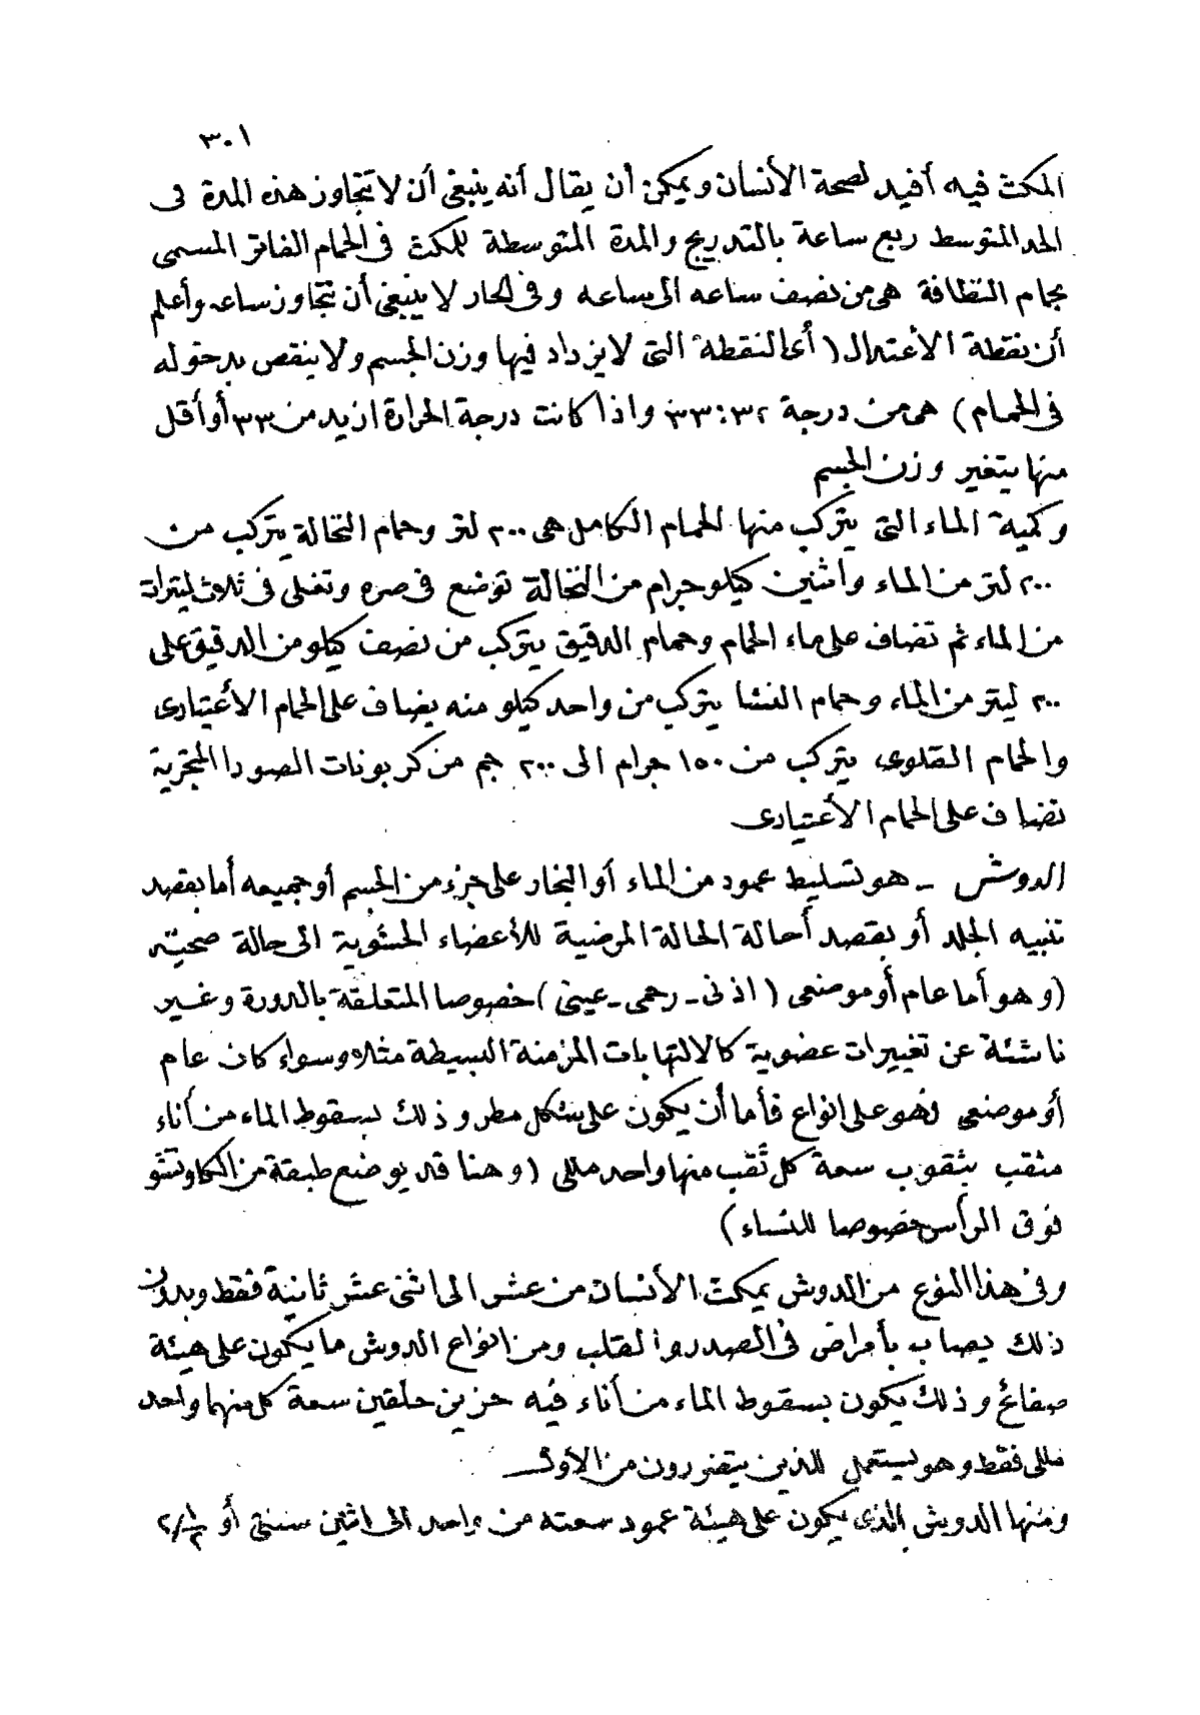 ٣٠١
المكث فيه أفيد لصحة الأنسان ويمكن أن يقال أنه ينبغى أن لا تتجاوز هذه المدة فى
الحد المتوسط ربع ساعة بالتدريج والمدة المتوسطة للمكث فى الحمام الفاتر المسمى
بحمام النظافة هى من نصف ساعه الى ساعه وفى الحار لا ينبغى أن تتجاوز ساعه وأعلم
أن نقطة الأعتدال (أى النقطة التى لا يزداد فيها وزن الجسم ولا ينقص بدخوله
فى الحمام) هى من درجة ٣٢:٣٣ واذا كانت درجة الحرارة ازيد من ٣٣ أو أقل
منها يتغير وزن الجسم
وكمية الماء التى يتركب منها الحمام الكامل هى ٢٠٠ لتر وحمام النخالة يتركب من
٢٠٠ لتر من الماء وأثنين كيلو جرام من النخالة توضع فى صره وتغلى فى ثلاث ليترات
من الماء ثم تضاف على ماء الحمام وحمام الدقيق يتركب من نصف كيلو من الدقيق على
٢٠٠ ليتر من الماء وحمام النشا يتركب من واحد كيلو منه يضاف على الحمام الأعتيادى
والحمام القلوى يتركب من ١٥٠ جرام الى ٢٠٠ جم من كربونات الصودا المتجرية
تضاف على الحمام الأعتيادى
الدوش - هو تسليط عمود من الماء أو البخار على جزء من الجسم أو جميعه أما بقصد
تنبيه الجلد أو بقصد أحالة الحالة المرضية للأعضاء الحشوية الى حالة صحيته
(وهو أما عام أو موضعى (اذنى - رحمى - عينى) خصوصا المتعلقة بالدورة وغير
ناشئة عن تغييرات عضوية كالالتهابات المزمنة البسيطة مثلا وسواء كان عام
أو موضعى فهو على انواع فأما أن يكون على شكل مطر وذلك بسقوط الماء من أناء
مثقب بثقوب سعة كل ثقب منها واحد مللى (وهنا قد يوضع طبقة من الكاوتشو
فوق الرأس خصوصا للنساء)
وفى هذا النوع من الدوش يمكث الأنسان من عشر الى اثنى عشر ثانية فقط وبدون
ذلك يصاب بأمراض فى الصدر والقلب ومن انواع الدوش ما يكون على هيئة
صفائح وذلك يكون بسقوط الماء من أناء فيه حزين حلقين سعة كل منهما واحد
مللى فقط وهو يستعمل للذين يتضررون من الأول
ومنها الدوش الذى يكون على هيئة عمود سعته من واحد الى اثنين سنتى أو ٢/١ ٢